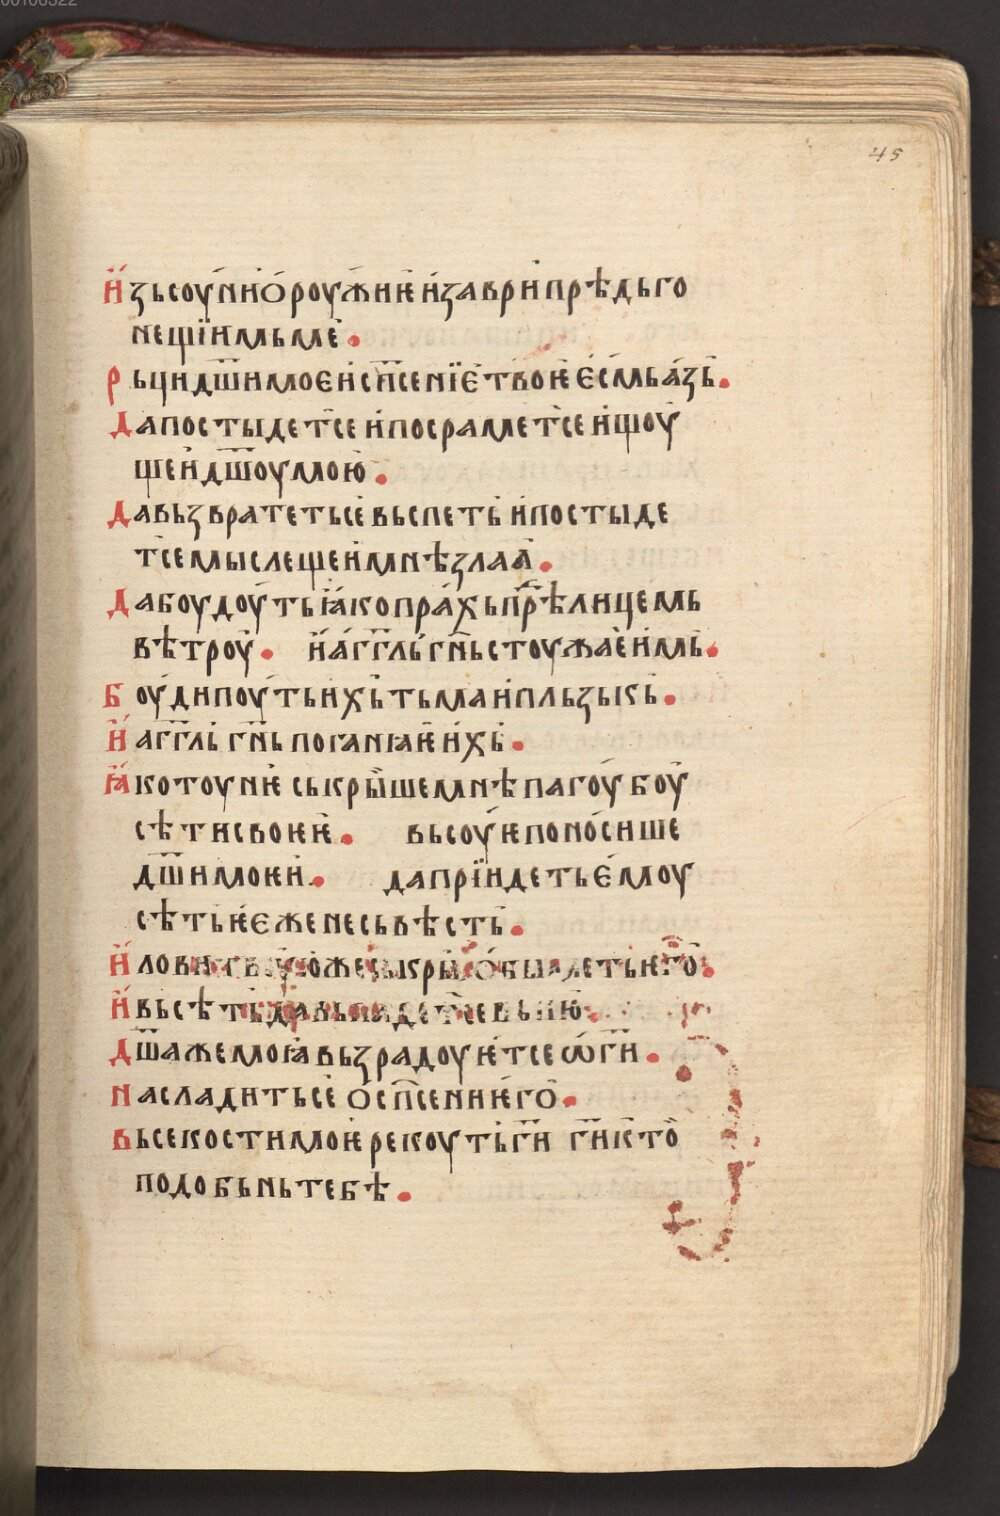 45
И҆зьсоу́ни ѻ҆роу́жиѥ и҆заври прѣдь го
нещїимь ме •
Рьци дш҃и моѥи сп҃сениѥ твоѥ ѥсмь азь •
Да постыдет се и҆ посрамет се и҆щоу
щеи дш҃оу мою •
Да вьзвратеть се вьспеть и҆ постыде
т се мыслещеи мнѣ злаа •
Да боудоуть ꙗко прахь прѣ лицемь
вѣтроу • и҆ агг҃ль гн҃ь стоужаѥ имь •
Боуди поуть ихь тьма и҆ пльзькь •
И҆ агг҃ль гн҃ь поганꙗѥ ихь •
Ꙗко тоуниѥ ськрыше мнѣ пагоубоу
сѣти своѥи • вьсоуѥ поносише
дш҃и моѥи • да прїидеть ѥмоу
сѣть ѥѥже не сьвѣсть •
И҆ ловитьвоу юже ськры ѻбьиметь ѥго •
И҆ вь сѣть да вьпадет се вь ню •
Дш҃а же моꙗ вьзрадоуѥт се ѡ г҃и •
Насладить се ѻ сп҃сении ѥго •
Вьсе кости моѥ рекоуть г҃и г҃и кто
подобьнь тебѣ •